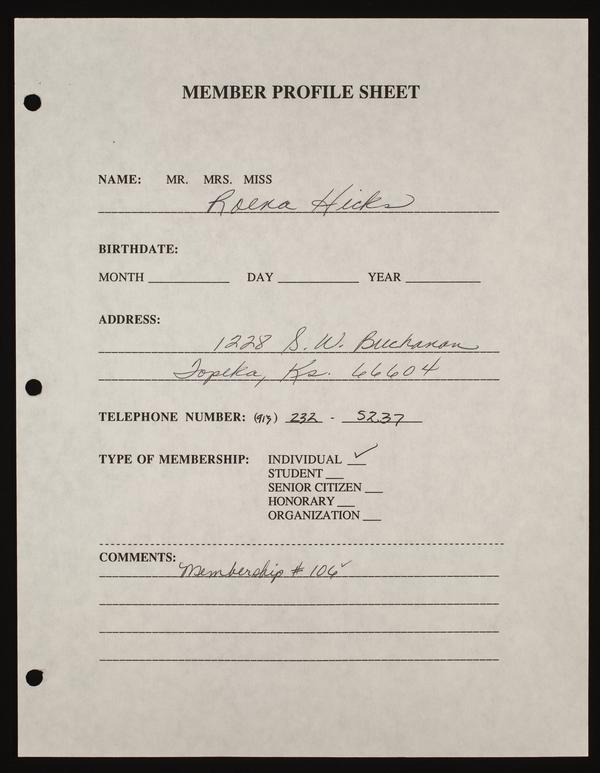 MEMBER PROFILE SHEET
NAME: MR. MRS. MISS
Roena Hicks
BIRTHDATE:
MONTH ____________ DAY ____________ YEAR ____________
ADDRESS:
1228 S.W. Buchanan
Topeka, Ks. 66604
TELEPHONE NUMBER: (913) 232 - 5237
TYPE OF MEMBERSHIP: INDIVIDUAL ✓
STUDENT ___
SENIOR CITIZEN ___
HONORARY ___
ORGANIZATION ___
COMMENTS:
Membership # 106 ✓